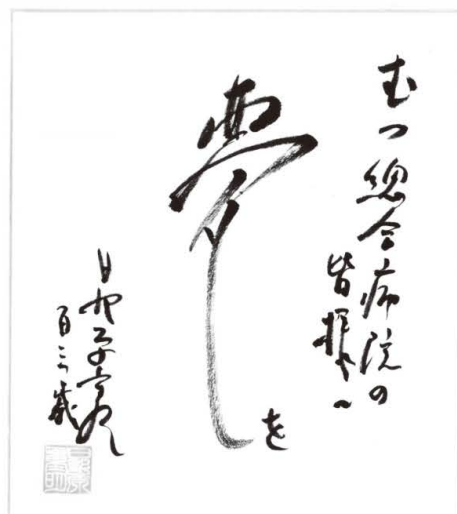 むつ総合病院の
皆様へ
夢を
日野原重明
百三歳